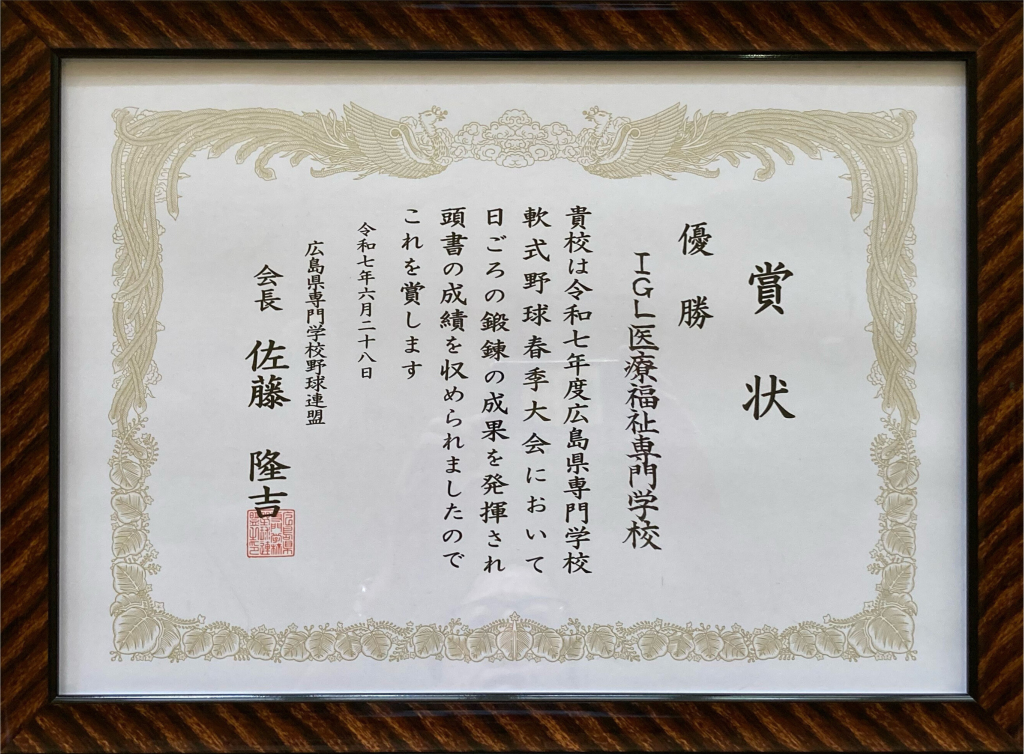 賞状
優勝
IGL医療福祉専門学校
貴校は令和七年度広島県専門学校
軟式野球春季大会において
日ごろの鍛錬の成果を発揮され
頭書の成績を収められましたので
これを賞します
令和七年六月二十八日
広島県専門学校野球連盟
会長 佐藤 隆吉